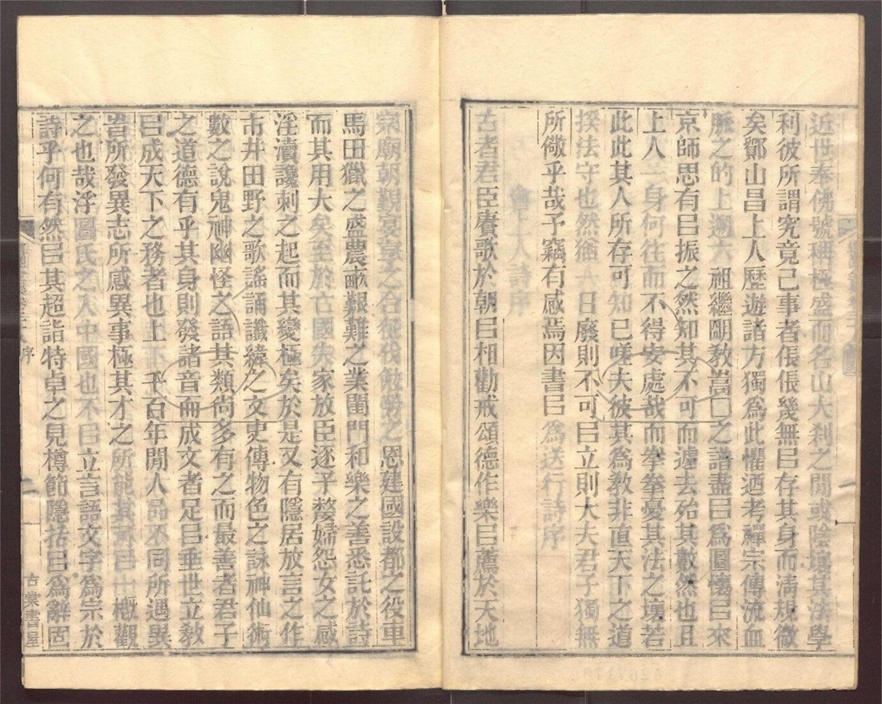 近世奉佛號稱極盛而名山大刹之間或陰壞其法學
利彼所謂究竟己事者倀倀幾無㠯存其身而淸規微
矣鄞山昌上人歷遊諸方獨爲此懼迺考禪宗傳流血
脈之的上遡六祖繼朙敎嵩□之譜盡㠯爲圖懷㠯來
京師思有㠯振之然知其不可而遽去殆其數然也且
上人一身何往而不得安處哉而拳拳憂其法之壞若
此此其人所存可知已嗟夫彼其爲敎非直天下之道
揆法守也然猶一日廢則不可㠯立則大夫君子獨無
所儆乎哉予竊有感焉因書㠯爲送行詩序
會上人詩序
古者君臣賡歌於朝㠯相勸戒頌德作樂㠯薦於天地
宗廟朝覲宴享之合征伐勉勞之恩建國設都之役車
馬田獵之盛農畝艱難之業閨門和樂之善悉託於詩
而其用大矣至於亡國失家放臣逐子嫠婦怨女之感
淫瀆讒刺之起而其變極矣於是又有隱居放言之作
市井田野之歌謠誦讖緯之文史傳物色之詠神仙術
數之說鬼神幽怪之語其類尙多有之而最善者君子
之道德有乎其身則發諸音而成文者足㠯垂世立敎
㠯成天下之務者也上下千百年閒人品不同所遇異
旹所發異志所感異事極其才之所能其可㠯一槪觀
之也哉浮圖氏之入中國也不㠯立言語文字爲宗於
詩乎何有然㠯其超詣特卓之見撙節隱括㠯爲辭固
序
二
古棠書屋